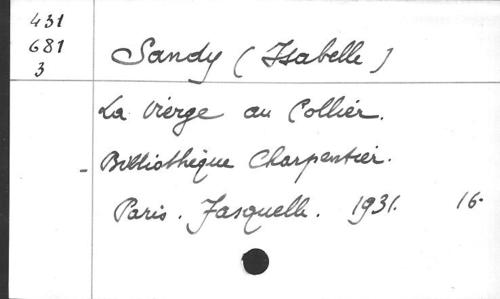 431
681
3
Sandy (Isabelle)
La Vierge au Collier.
- Bibliothèque Charpentier.
Paris. Fasquelle. 1931. 16.